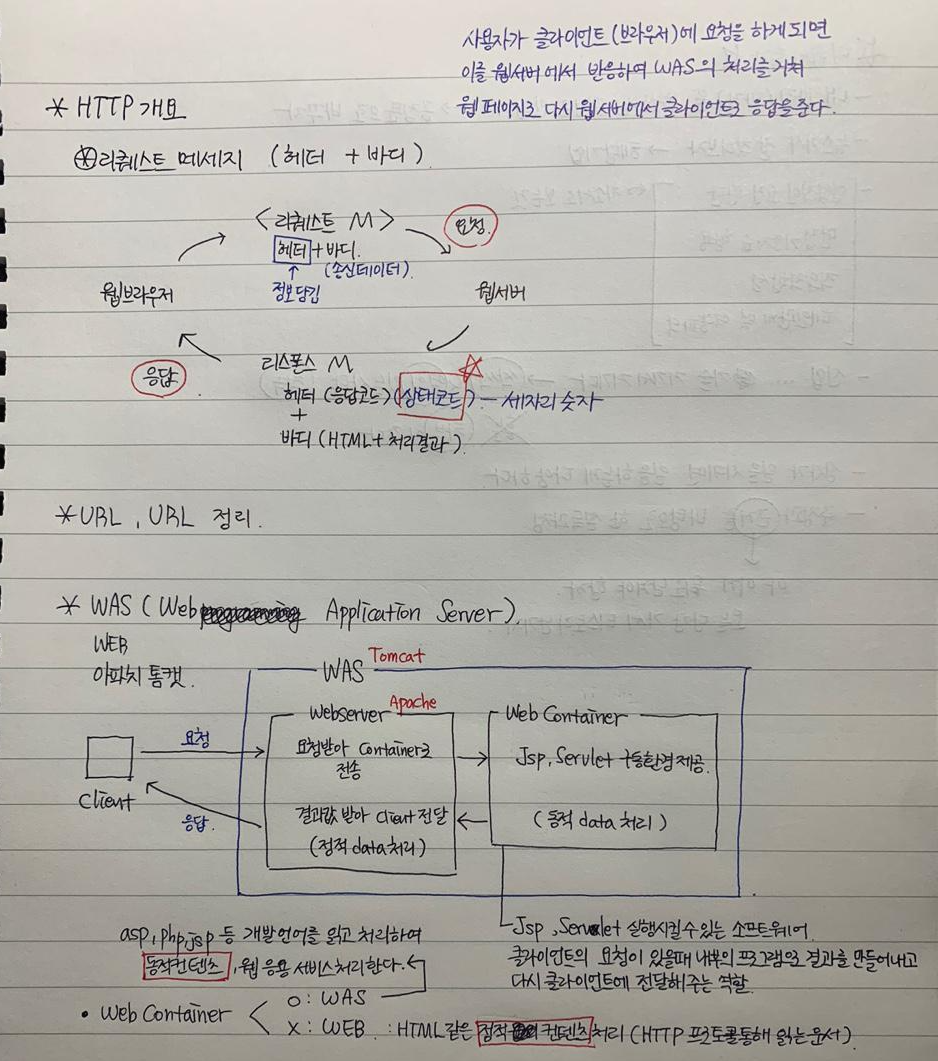 사용자가 클라이언트(브라우저)에 요청을 하게되면
이를 웹서버에서 반응하여 WAS의 처리를 거쳐
웹페이지로 다시 웹서버에서 클라이언트로 응답을준다.
* HTTP 개요
* 리퀘스트 메세지 (헤더 + 바디).
<리퀘스트 M>
요청
헤더 + 바디.
(송신데이터).
정보담김
웹브라우저
웹서버
리스폰스 M
응답
헤더 (응답코드) (상태코드) - 세자리 숫자
+
바디 (HTML + 처리결과).
* URL, URL 정리.
* WAS (Web Application Server).
WEB
아파치 톰캣.
WAS Tomcat
Webserver Apache
Web Container
요청
요청받아 Container로
전송
Jsp, Servlet 구동환경제공.
Client
응답.
결과값 받아 Client 전달
(정적 data 처리)
(동적 data 처리)
asp, php, jsp 등 개발언어를 읽고 처리하여
동적컨텐츠, 웹 응용 서비스처리한다.
Jsp, Servlet 실행시킬수있는 소프트웨어.
클라이언트의 요청이 있을때 내부의 프로그램으로 결과를 만들어내고
다시 클라이언트에 전달해주는 역할.
• Web Container < O : WAS
X : WEB : HTML같은 정적 컨텐츠처리 (HTTP 프로토콜통해 읽는문서).